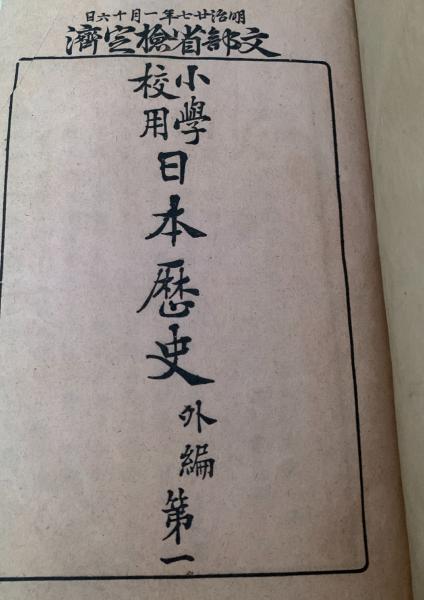 明治廿七年一月十六日
文部省檢定濟
小學
校用
日本歴史 外編 第一